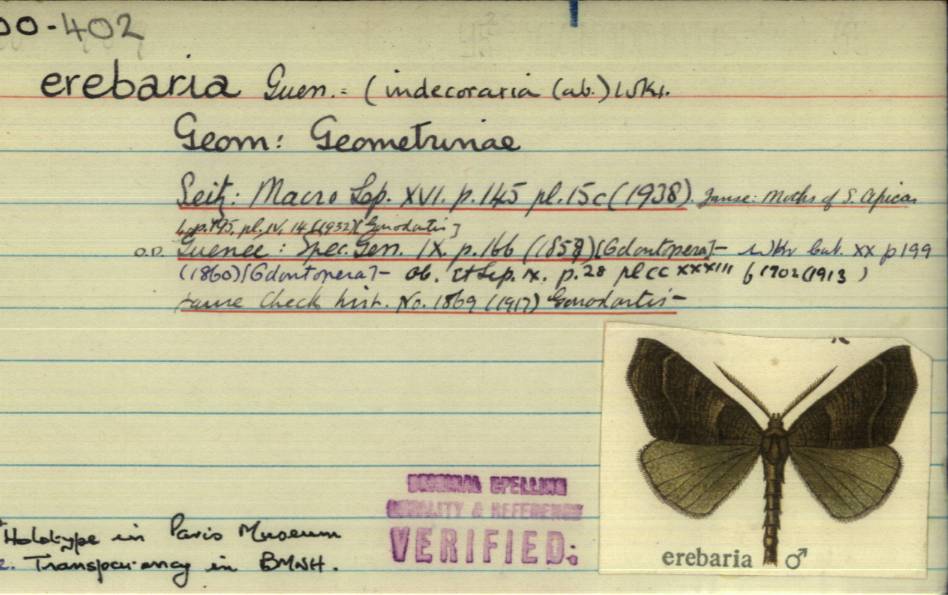 00-402
erebaria Guen. = (indecoraria (ab.) Wkr.
Geom: Geometrinae
Seitz: Macro Lep. XVI. p.145 pl.15c (1938). Janse: Moths of S. Africa
pl. IV, 14 (1932) [Gonodontis]
O.D. Guenee: Spec. Gen. IX. p.166 (1858) [Odontopera] - Wkr Cat. XX p199
(1860) [Odontopera] - Ob. Et Lep. IX. p.28 pl CCXXXIII f 1902 (1913)
Janse Check List. No. 1869 (1917) Gonodontis -
ORIGINAL SPELLING
LOCALITY & REFERENCE
VERIFIED:
Holotype in Paris Museum
2. Transparency in BMNH.
erebaria ♂